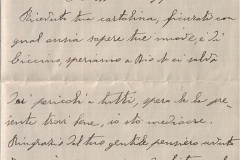 Ricevuto tua cartolina, figurati con
qual ansia sapere tue nuove, e di
speriamo a Dio ci salvi
Dai pericoli a tutti, spero che la pre
sente trovi bene, io sto mediocre.
Ringrazio del tuo gentile pensiero avuto